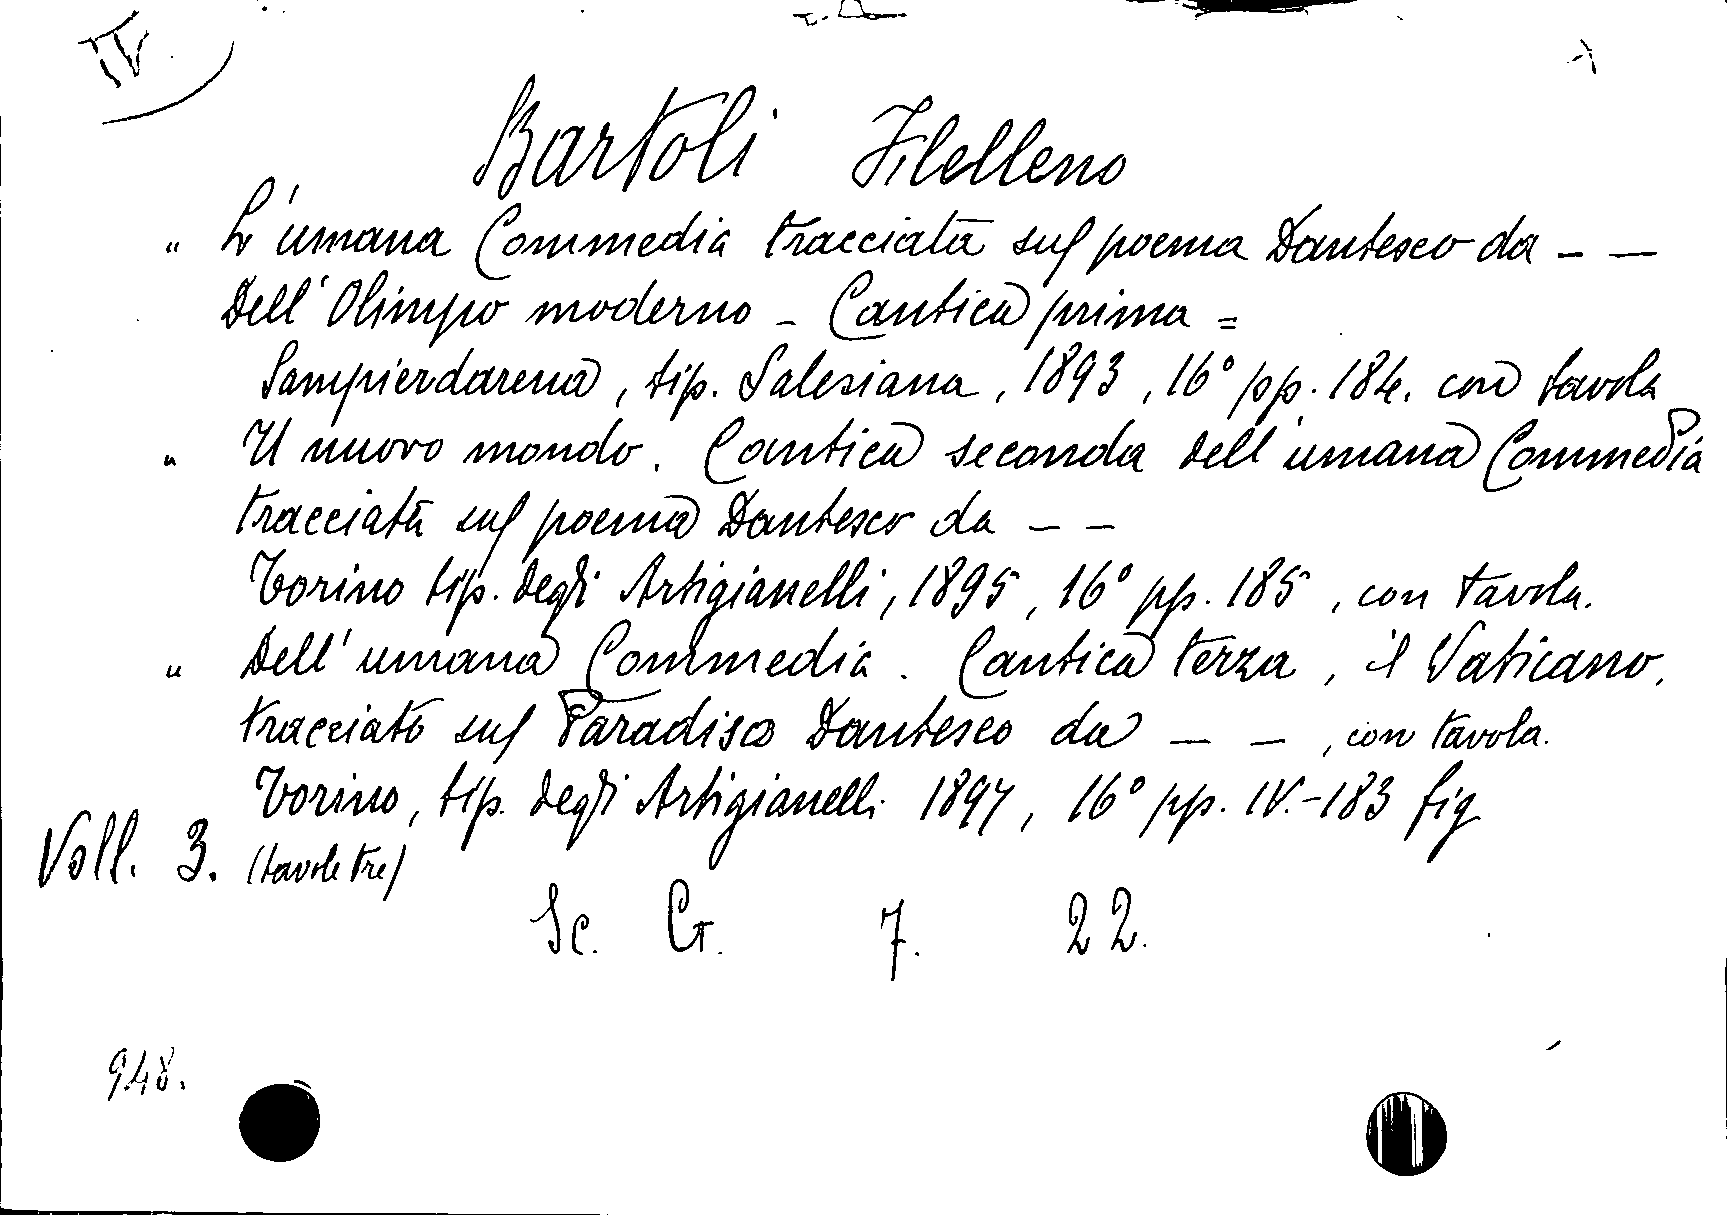 IV.
Bartoli Filelleno
" L'umana Commedia tracciata sul poema Dantesco da – –
Dell'Olimpo moderno – Cantica prima =
Sampierdarena, tip. Salesiana, 1893, 16° pp. 184. con tavola
" Il nuovo mondo. Cantica seconda dell'umana Commedia
tracciata sul poema Dantesco da – –
Torino tip. degli Artigianelli, 1895, 16° pp. 185, con tavola.
" Dell'umana Commedia. Cantica terza, il Vaticano.
tracciato sul Paradiso Dantesco da – –, con tavola.
Torino, tip. degli Artigianelli 1897, 16° pp. IV.–183 fig
Voll. 3. (tavole tre)
Sc. G. 7. 22.
948.